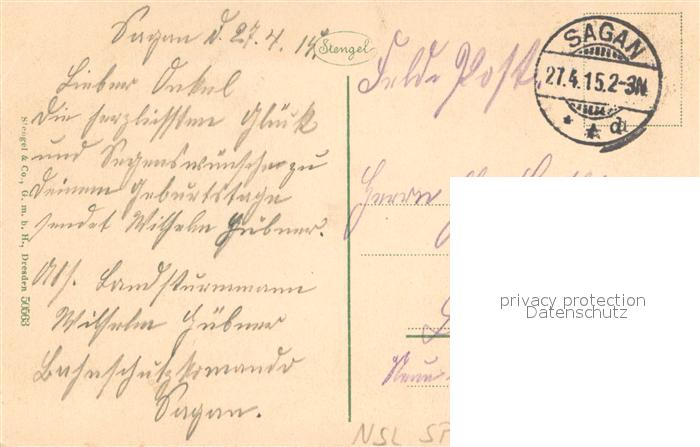 Sagan d. 27.4.15.
Lieber Onkel
Die herzlichsten Glück
und Segenswünsche zu
deinem Geburtstage
sendet Wilhelm Hübner.
Abs. Landsturmmann
Wilhelm Hübner
Bahnschutzkomando
Sagan.
Stengel & Co., G. m. b. H., Dresden 50563
Stengel
Feld-Post.
SAGAN
27.4.15.2-3N.
* * d
Herrn
privacy protection
Datenschutz
NSL SP